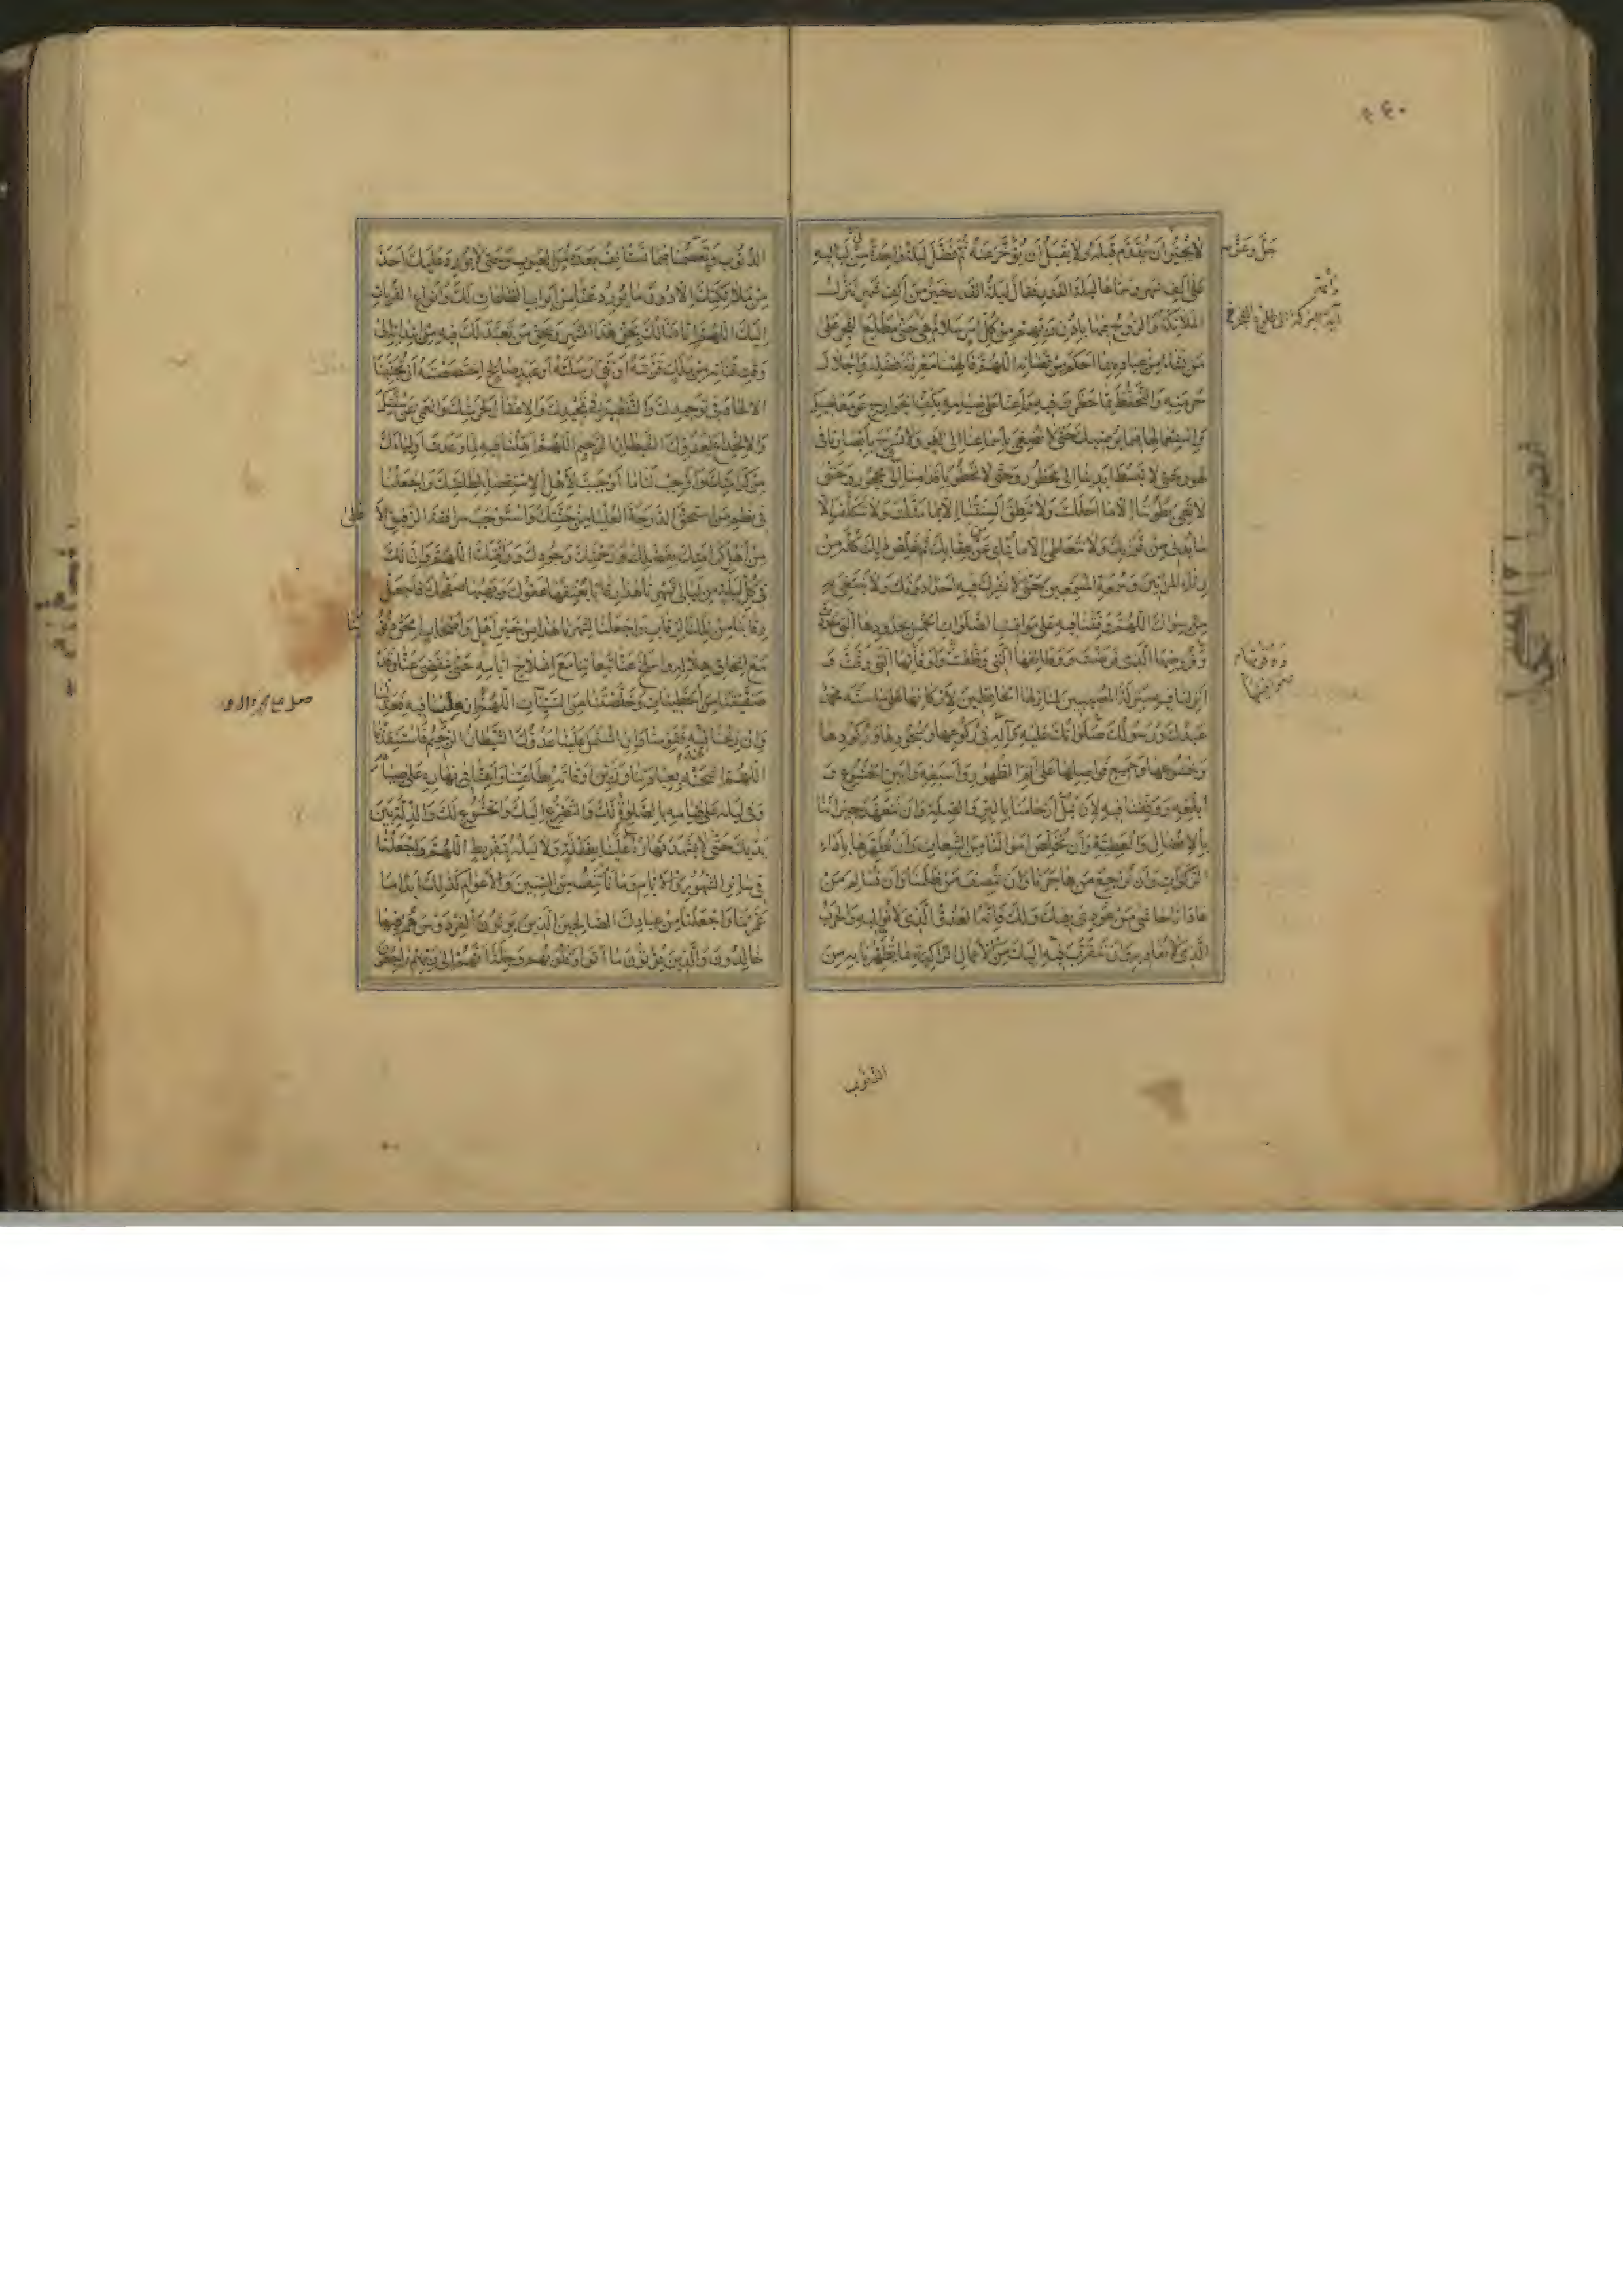 ٤٤٠
لَا يُجِيزُ أَنْ يُقَدَّمَ قَبْلَهُ وَلَا يَقْبَلُ أَنْ يُؤَخَّرَ عَنْهُ ثُمَّ فَضَّلَ لَيْلَةً وَاحِدَةً مِنْ لَيَالِيهِ
جَلَّ وَعَزَّ
عَلَى لَيَالِي أَلْفِ شَهْرٍ وَسَمَّاهَا لَيْلَةَ الْقَدْرِ فَقَالَ لَيْلَةُ الْقَدْرِ خَيْرٌ مِنْ أَلْفِ شَهْرٍ تَنَزَّلُ
الْمَلَائِكَةُ وَالرُّوحُ فِيهَا بِإِذْنِ رَبِّهِمْ مِنْ كُلِّ أَمْرٍ سَلَامٌ هِيَ حَتَّى مَطْلَعِ الْفَجْرِ عَلَى
مَنْ يَشَاءُ مِنْ عِبَادِهِ بِمَا أَحْكَمَ مِنْ قَضَائِهِ اللَّهُمَّ فَأَلْهِمْنَا مَعْرِفَةَ فَضْلِهِ وَإِجْلَالَ
حُرْمَتِهِ وَالتَّحَفُّظَ مِمَّا حَظَرْتَ فِيهِ وَأَعِنَّا عَلَى صِيَامِهِ بِكَفِّ الْجَوَارِحِ عَنْ مَعَاصِيكَ
وَاسْتِعْمَالِهَا فِيمَا يُرْضِيكَ حَتَّى لَا نُصْغِيَ بِأَسْمَاعِنَا إِلَى لَغْوٍ وَلَا نُسْرِحَ بِأَبْصَارِنَا فِي
لَهْوٍ وَحَتَّى لَا نَبْسُطَ أَيْدِيَنَا إِلَى مَحْظُورٍ وَحَتَّى لَا نَخْطُوَ بِأَقْدَامِنَا إِلَى مَحْجُورٍ وَحَتَّى
لَا تَعِيَ بُطُونُنَا إِلَّا مَا أَحْلَلْتَ وَلَا تَنْطِقَ أَلْسِنَتُنَا إِلَّا بِمَا مَثَّلْتَ وَلَا نَتَكَلَّفَ إِلَّا
مَا يُدْنِي مِنْ ثَوَابِكَ وَلَا نَتَعَاطَى إِلَّا مَا يَقِي مِنْ عِقَابِكَ ثُمَّ خَلِّصْ ذَلِكَ كُلَّهُ مِنْ
رِئَاءِ الْمُرَائِينَ وَسُمْعَةِ الْمُسْمِعِينَ حَتَّى لَا نُشْرِكَ فِيهِ أَحَدًا دُونَكَ وَلَا نَبْتَغِيَ بِهِ
مَنْ سِوَاكَ اللَّهُمَّ وَقِّفْنَا فِيهِ عَلَى مَوَاقِيتِ الصَّلَوَاتِ الْخَمْسِ بِحُدُودِهَا الَّتِي حَدَّدْتَ
وَفُرُوضِهَا الَّتِي فَرَضْتَ وَوَظَائِفِهَا الَّتِي وَظَّفْتَ وَأَوْقَاتِهَا الَّتِي وَقَّتَّ وَ
أَنْزِلْنَا فِيهِ مَنْزِلَةَ الْمُصِيبِينَ لِمَنَازِلِهَا الْحَافِظِينَ لِأَرْكَانِهَا عَلَى مَا سَنَّهُ مُحَمَّدٌ
عَبْدُكَ وَرَسُولُكَ صَلَوَاتُكَ عَلَيْهِ وَآلِهِ فِي رُكُوعِهَا وَسُجُودِهَا وَرُكُودِهَا
وَخُشُوعِهَا وَجَمِيعِ فَوَاضِلِهَا عَلَى أَتَمِّ الطَّهُورِ وَأَسْبَغِهِ وَأَبْيَنِ الْخُشُوعِ وَ
أَبْلَغِهِ وَوَفِّقْنَا فِيهِ لِأَنْ نَصِلَ أَرْحَامَنَا بِالْبِرِّ وَالصِّلَةِ وَأَنْ نَتَعَهَّدَ جِيرَانَنَا
بِالْإِفْضَالِ وَالْعَطِيَّةِ وَأَنْ نُخَلِّصَ أَمْوَالَنَا مِنَ التَّبِعَاتِ وَأَنْ نُطَهِّرَهَا بِإِخْرَاجِ
الزَّكَوَاتِ وَأَنْ نُرَاجِعَ مَنْ هَاجَرَنَا وَأَنْ نُنْصِفَ مَنْ ظَلَمَنَا وَأَنْ نُسَالِمَ مَنْ
عَادَانَا حَاشَى مَنْ عُودِيَ فِيكَ وَلَكَ فَإِنَّهُ الْعَدُوُّ الَّذِي لَا نُوَالِيهِ وَالْحِزْبُ
الَّذِي لَا نُصَافِيهِ وَأَنْ نَتَقَرَّبَ فِيهِ إِلَيْكَ مِنَ الْأَعْمَالِ الزَّاكِيَةِ بِمَا تُطَهِّرُنَا بِهِ مِنَ
الذُّنُوبِ
الذُّنُوبِ وَتَعْصِمُنَا فِيهِ مِمَّا نَسْتَأْنِفُ بَعْدَهُ مِنَ الْعُيُوبِ حَتَّى لَا يُورِدَ عَلَيْكَ أَحَدٌ
مِنْ مَلَائِكَتِكَ إِلَّا دُونَ مَا نُورِدُ عَنَّا مِنْ أَبْوَابِ الطَّاعَاتِ لَكَ وَأَنْوَاعِ الْقُرُبَاتِ
إِلَيْكَ اللَّهُمَّ إِنَّا نَسْأَلُكَ بِحَقِّ هَذَا الشَّهْرِ وَبِحَقِّ مَنْ تَعَبَّدَ لَكَ فِيهِ مِنِ ابْتِدَائِهِ إِلَى
وَقْتِ فَنَائِهِ مِنْ مَلَكٍ قَرَّبْتَهُ أَوْ نَبِيٍّ أَرْسَلْتَهُ أَوْ عَبْدٍ صَالِحٍ اخْتَصَصْتَهُ أَنْ تُجَنِّبَنَا
الْإِلْحَادَ فِي تَوْحِيدِكَ وَالتَّقْصِيرَ فِي تَمْجِيدِكَ وَالْإِغْفَالَ لِحُرْمَتِكَ وَالْعَمَى عَنْ سَبِيلِكَ
وَالِانْخِدَاعَ لِعَدُوِّكَ الشَّيْطَانِ الرَّجِيمِ اللَّهُمَّ أَهِّلْنَا فِيهِ لِمَا وَعَدْتَ أَوْلِيَاءَكَ
مِنْ كَرَامَتِكَ وَأَوْجِبْ لَنَا مَا أَوْجَبْتَ لِأَهْلِ الِاسْتِقْصَاءِ لِطَاعَتِكَ وَاجْعَلْنَا
فِي نَظْمِ مَنِ اسْتَحَقَّ الدَّرَجَةَ الْعُلْيَا مِنْ جَنَّتِكَ وَاسْتَوْجَبَ مُرَافَقَةَ الرَّفِيقِ الْأَعْلَى
مِنْ أَهْلِ كَرَامَتِكَ بِفَضْلِكَ وَرَحْمَتِكَ وَجُودِكَ وَرَأْفَتِكَ اللَّهُمَّ وَإِنَّ لَكَ
فِي كُلِّ لَيْلَةٍ مِنْ لَيَالِي شَهْرِنَا هَذَا رِقَابًا يُعْتِقُهَا عَفْوُكَ وَيَهَبُهَا صَفْحُكَ فَاجْعَلْ
رِقَابَنَا مِنْ تِلْكَ الرِّقَابِ وَاجْعَلْنَا لِشَهْرِنَا هَذَا مِنْ خَيْرِ أَهْلٍ وَأَصْحَابٍ امْحَقْ ذُنُوبَنَا
مَعَ امِّحَاقِ هِلَالِهِ وَاسْلَخْ عَنَّا تَبِعَاتِنَا مَعَ انْسِلَاخِ أَيَّامِهِ حَتَّى يَنْقَضِيَ عَنَّا وَقَدْ
صَفَّيْتَنَا مِنَ الْخَطِيئَاتِ وَخَلَّصْتَنَا مِنَ السَّيِّئَاتِ اللَّهُمَّ إِنْ مِلْنَا فِيهِ فَعَدِّلْنَا
وَإِنْ زِغْنَا فِيهِ فَقَوِّمْنَا وَإِنِ اشْتَمَلَ عَلَيْنَا عَدُوُّكَ الشَّيْطَانُ الرَّجِيمُ فَاسْتَنْقِذْنَا
اللَّهُمَّ اشْحَنْهُ بِعِبَادَتِنَا وَزَيِّنْ أَوْقَاتَهُ بِطَاعَتِنَا وَأَعِنَّا فِي نَهَارِهِ عَلَى صِيَامِهِ
وَفِي لَيْلِهِ عَلَى قِيَامِهِ بِالصَّلَوةِ لَكَ وَالتَّضَرُّعِ إِلَيْكَ وَالْخُشُوعِ لَكَ وَالذِّلَّةِ بَيْنَ
يَدَيْكَ حَتَّى لَا يَشْهَدَ نَهَارُهُ عَلَيْنَا بِغَفْلَةٍ وَلَا لَيْلُهُ بِتَفْرِيطٍ اللَّهُمَّ وَاجْعَلْنَا
فِي سَائِرِ الشُّهُورِ وَالْأَيَّامِ وَالسِّنِينَ وَالْأَعْوَامِ كَذَلِكَ أَبَدًا مَا
عَمَّرْتَنَا وَاجْعَلْنَا مِنْ عِبَادِكَ الصَّالِحِينَ الَّذِينَ يَرِثُونَ الْفِرْدَوْسَ هُمْ فِيهَا
خَالِدُونَ وَالَّذِينَ يُؤْتُونَ مَا آتَوْا وَقُلُوبُهُمْ وَجِلَةٌ أَنَّهُمْ إِلَى رَبِّهِمْ رَاجِعُونَ